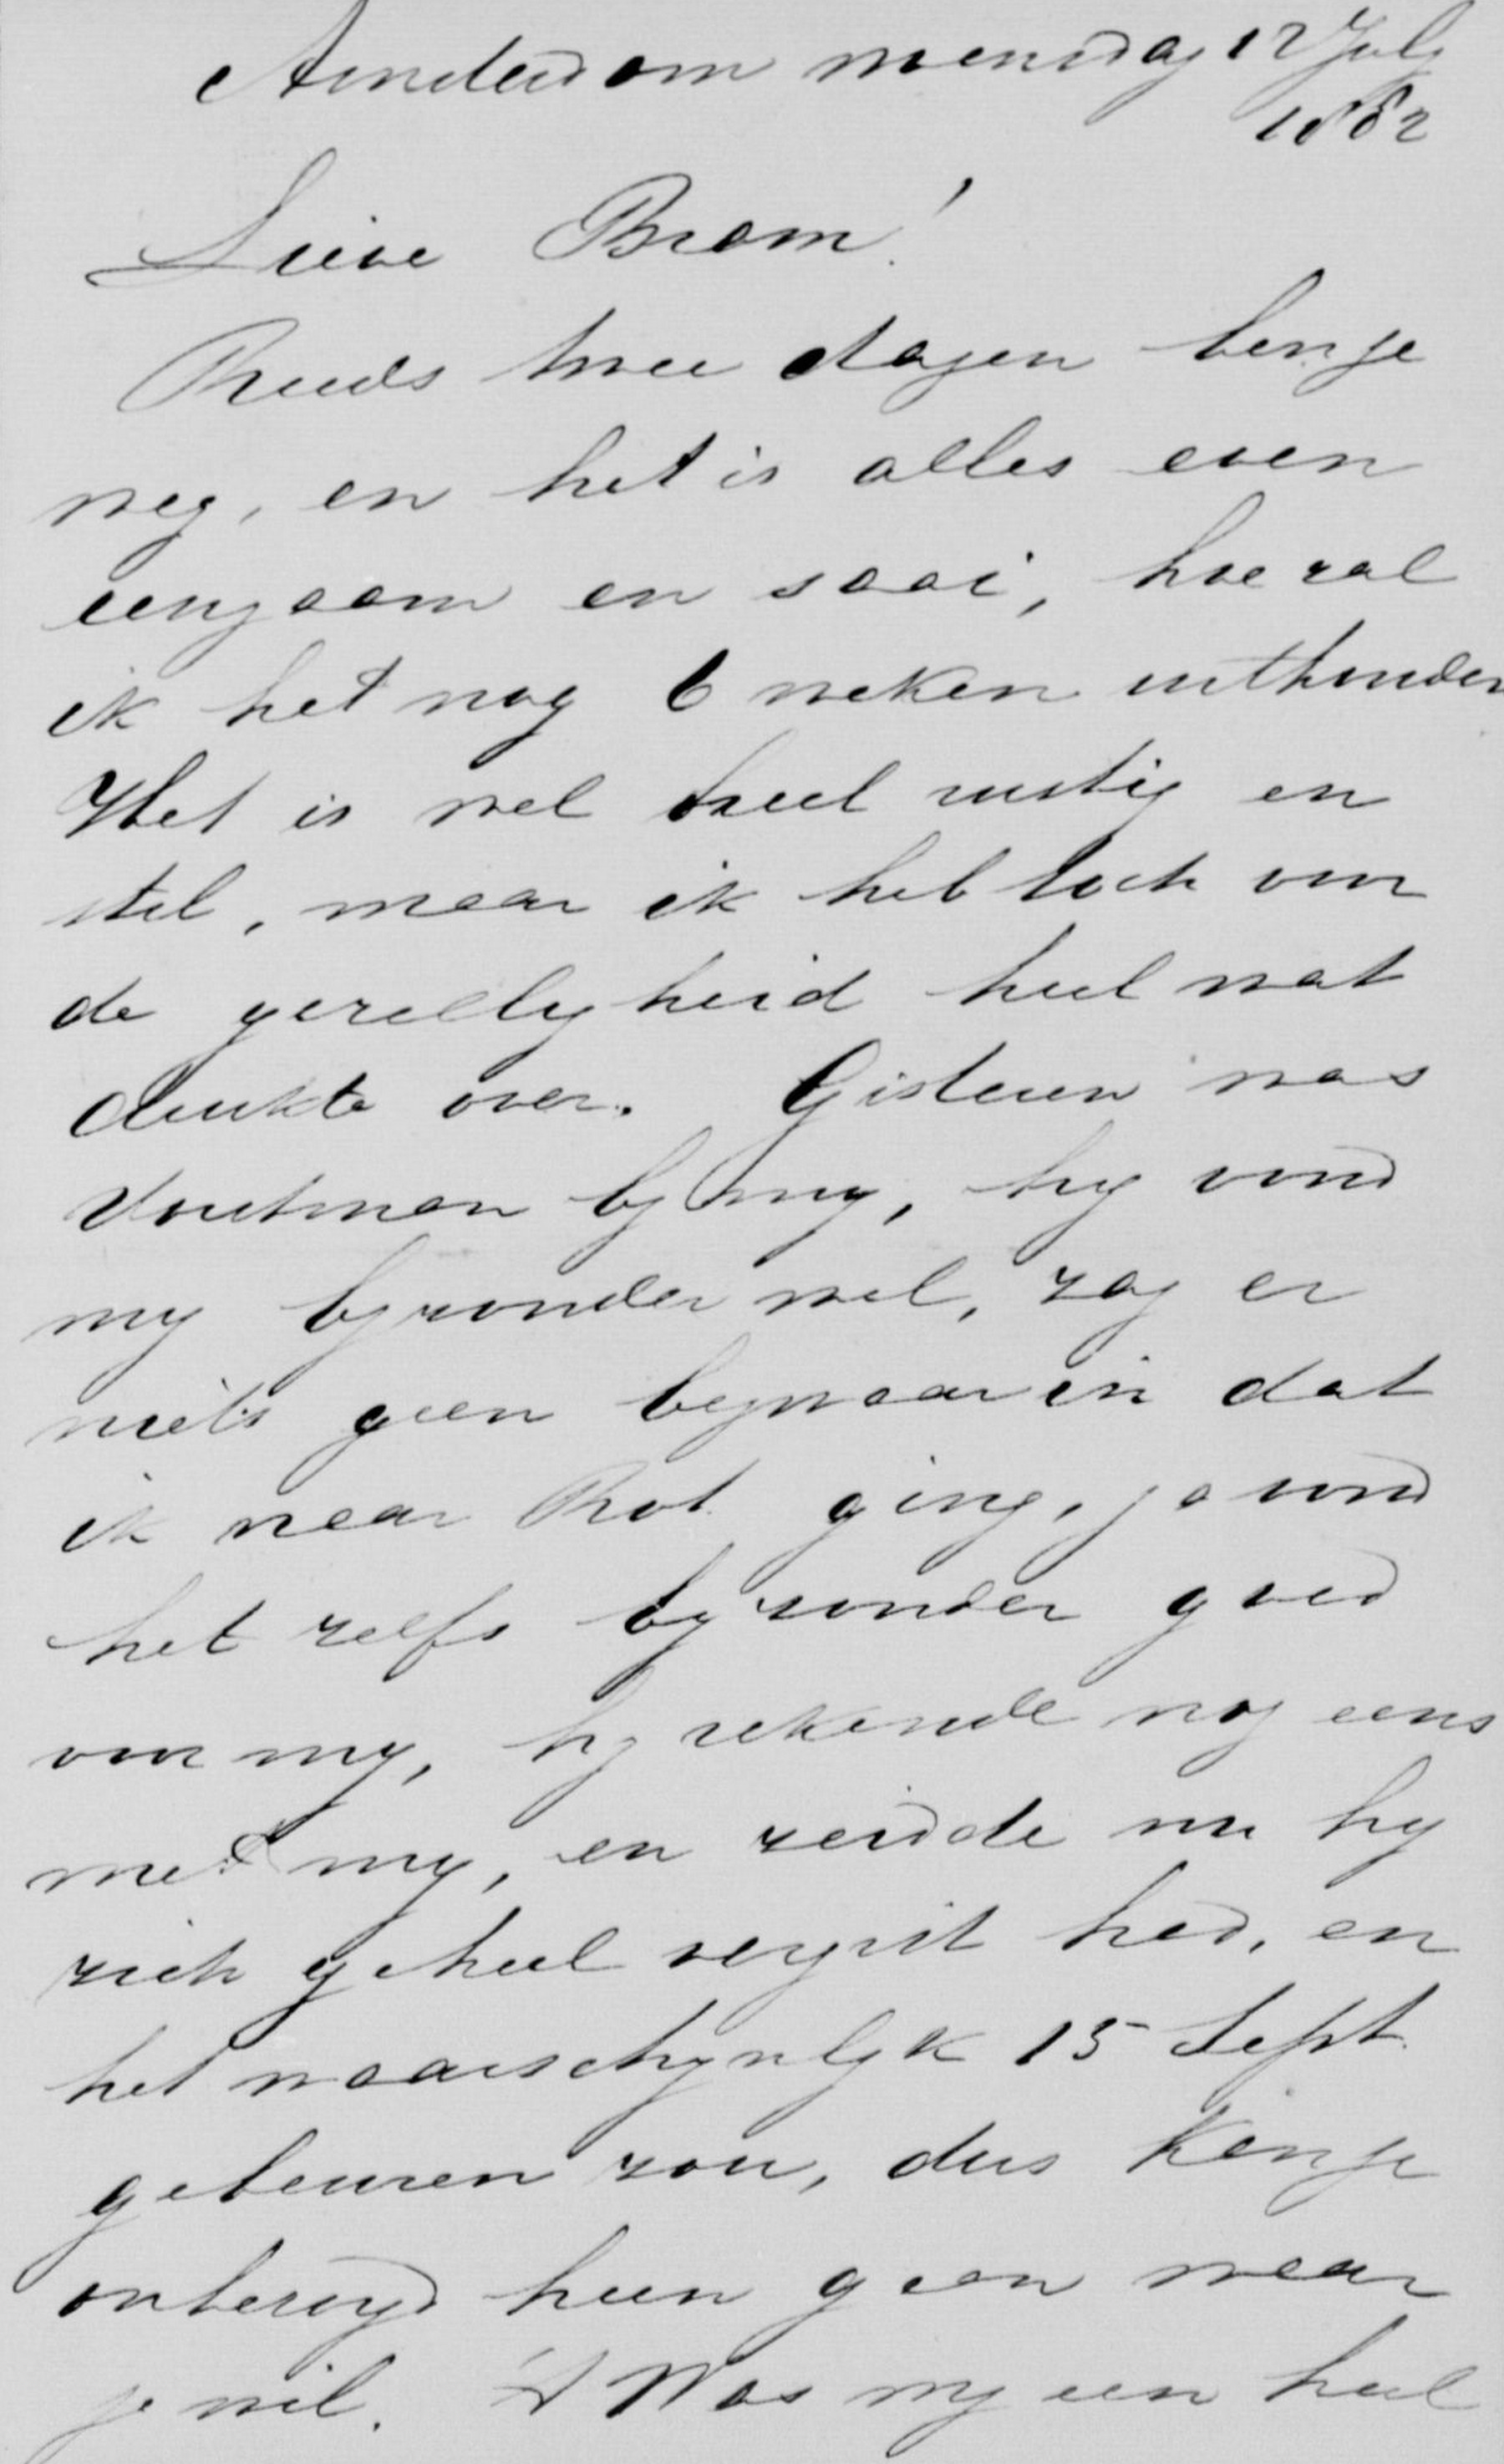 Amsterdam maandag 17 July
1882
Lieve Bram!
Reeds twee dagen ben je
weg, en het is alles even
eenzaam en saai, hoe zal
ik het nog 6 weken uithouden
Het is wel heel rustig en
stil, maar ik heb toch voor
de gezelligheid heel wat
drukte over. Gisteren was
Voutman by my, hy vond
my byzonder wel, zag er
niets geen bezwaar in dat
ik naar Rot. ging, ja vond
het zelfs byzonder goed
voor my, hy rekende nog eens
met my, en zeidde nu hy
zich geheel vergist had, en
het waarschynlyk 15 Sept.
gebeuren zou, dus kan je
onbezorgd heen gaan waar
je wil. 't Was my een heel